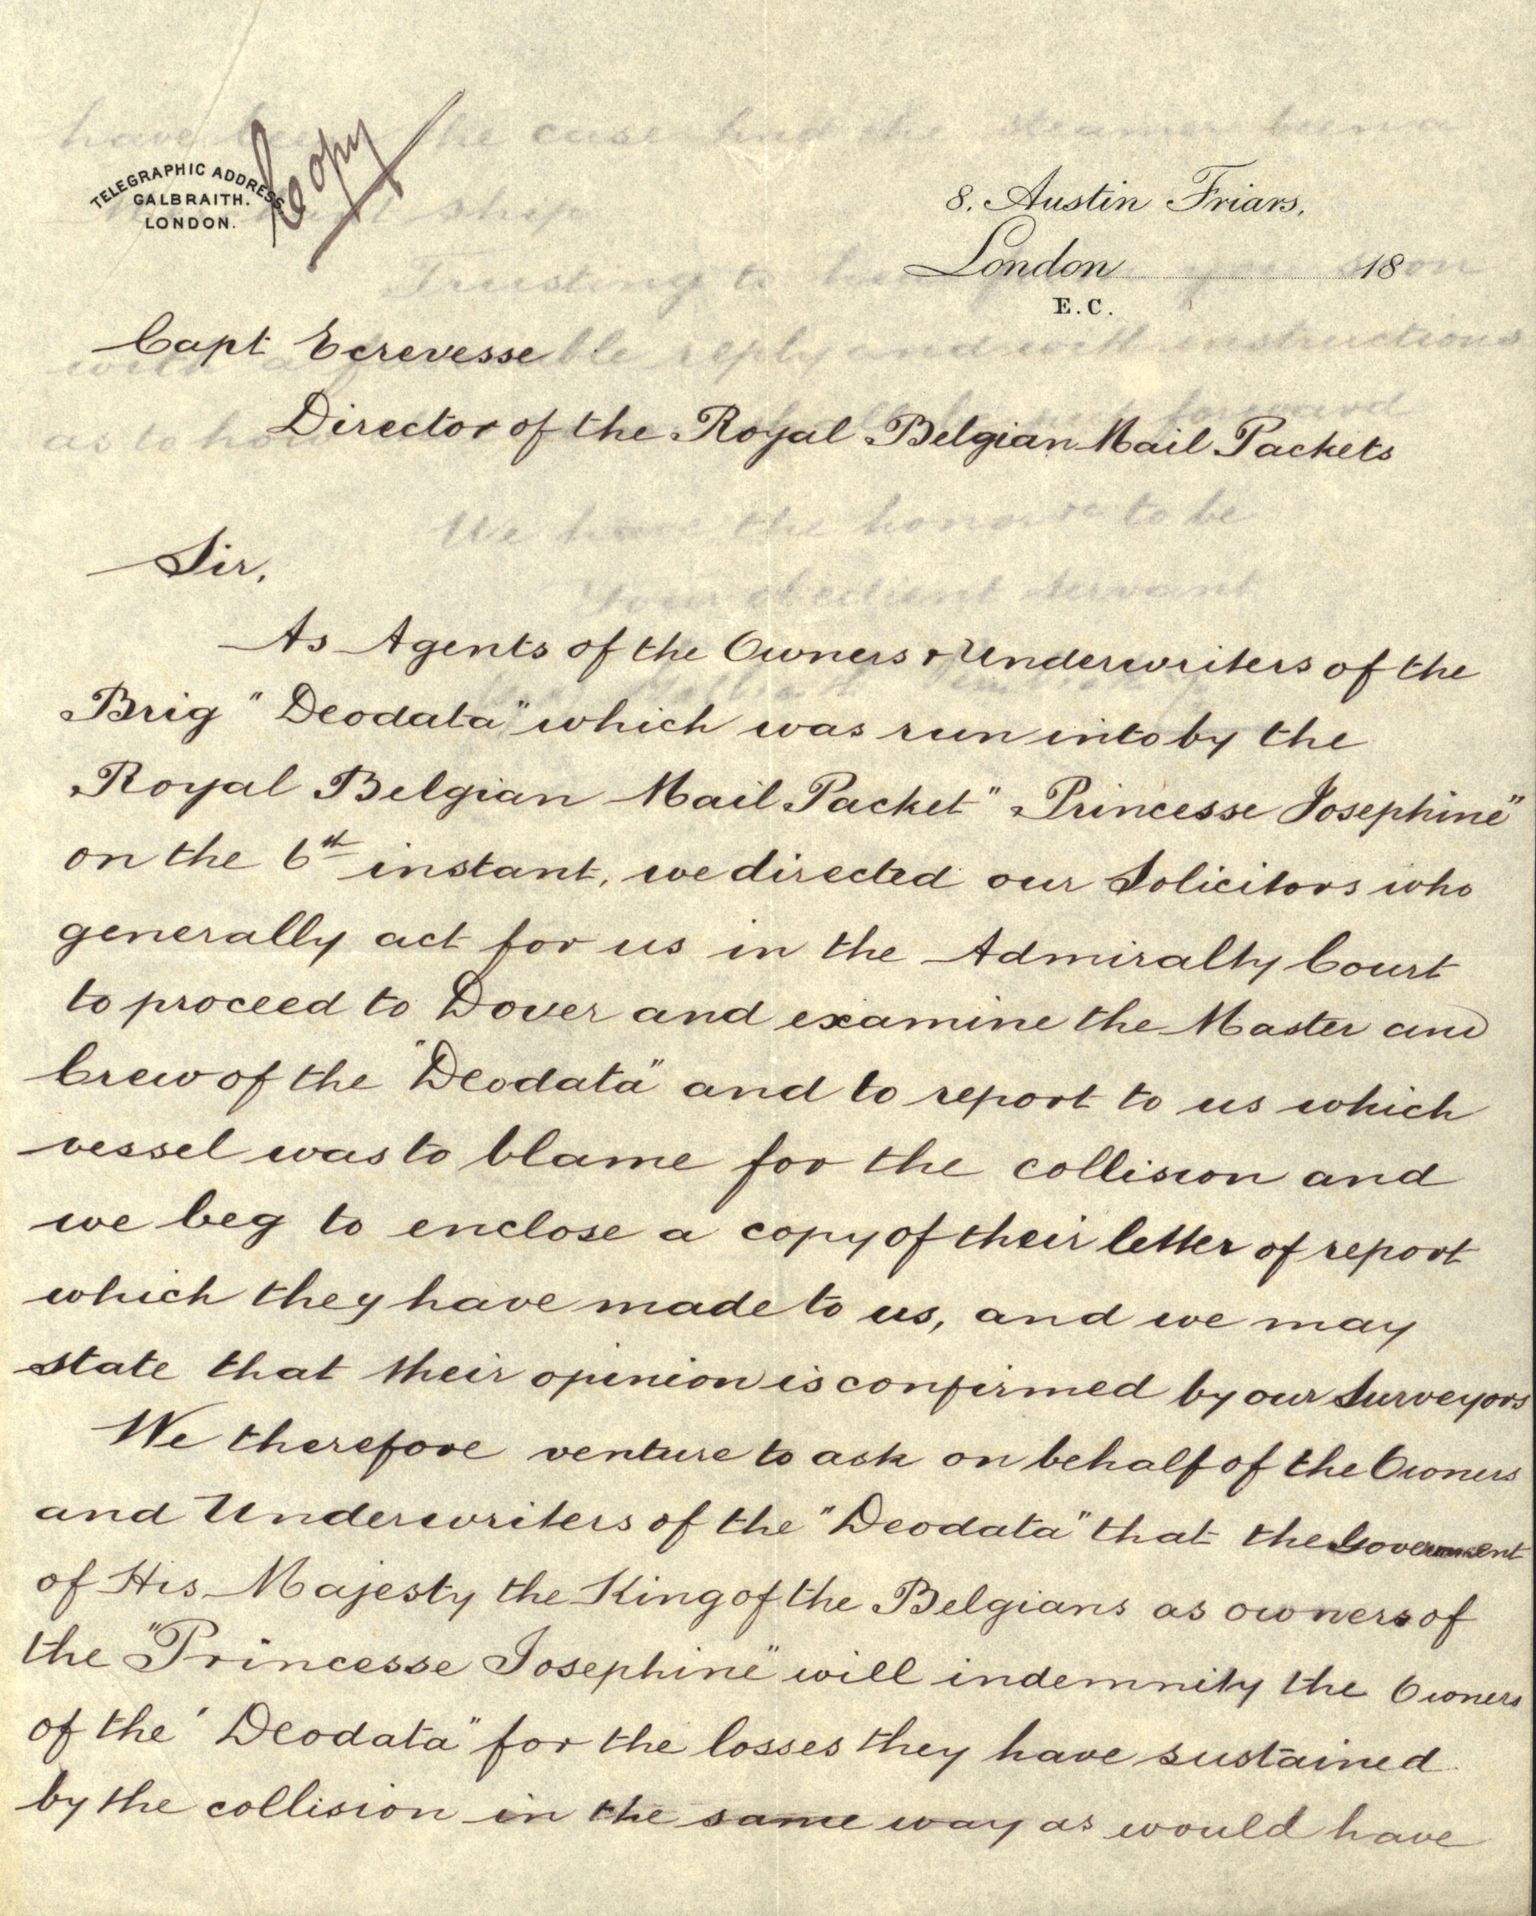 TELEGRAPHIC ADDRESS.
GALBRAITH.
LONDON.
Copy
8. Austin Friars,
London 18
E.C.
Capt Ecrevesse
Director of the Royal Belgian Mail Packets
Sir,
As Agents of the Owners & Underwriters of the
Brig "Deodata" which was run into by the
Royal Belgian Mail Packet "Princesse Josephine"
on the 6th instant, we directed our Solicitors who
generally act for us in the Admiralty Court
to proceed to Dover and examine the Master and
Crew of the "Deodata" and to report to us which
vessel was to blame for the collision and
we beg to enclose a copy of their letter of report
which they have made to us, and we may
state that their opinion is confirmed by our Surveyors
We therefore venture to ask on behalf of the Owners
and Underwriters of the "Deodata" that the Government
of His Majesty the King of the Belgians as owners of
the "Princesse Josephine" will indemnity the Owners
of the ' Deodata" for the losses they have sustained
by the collision in the same way as would have